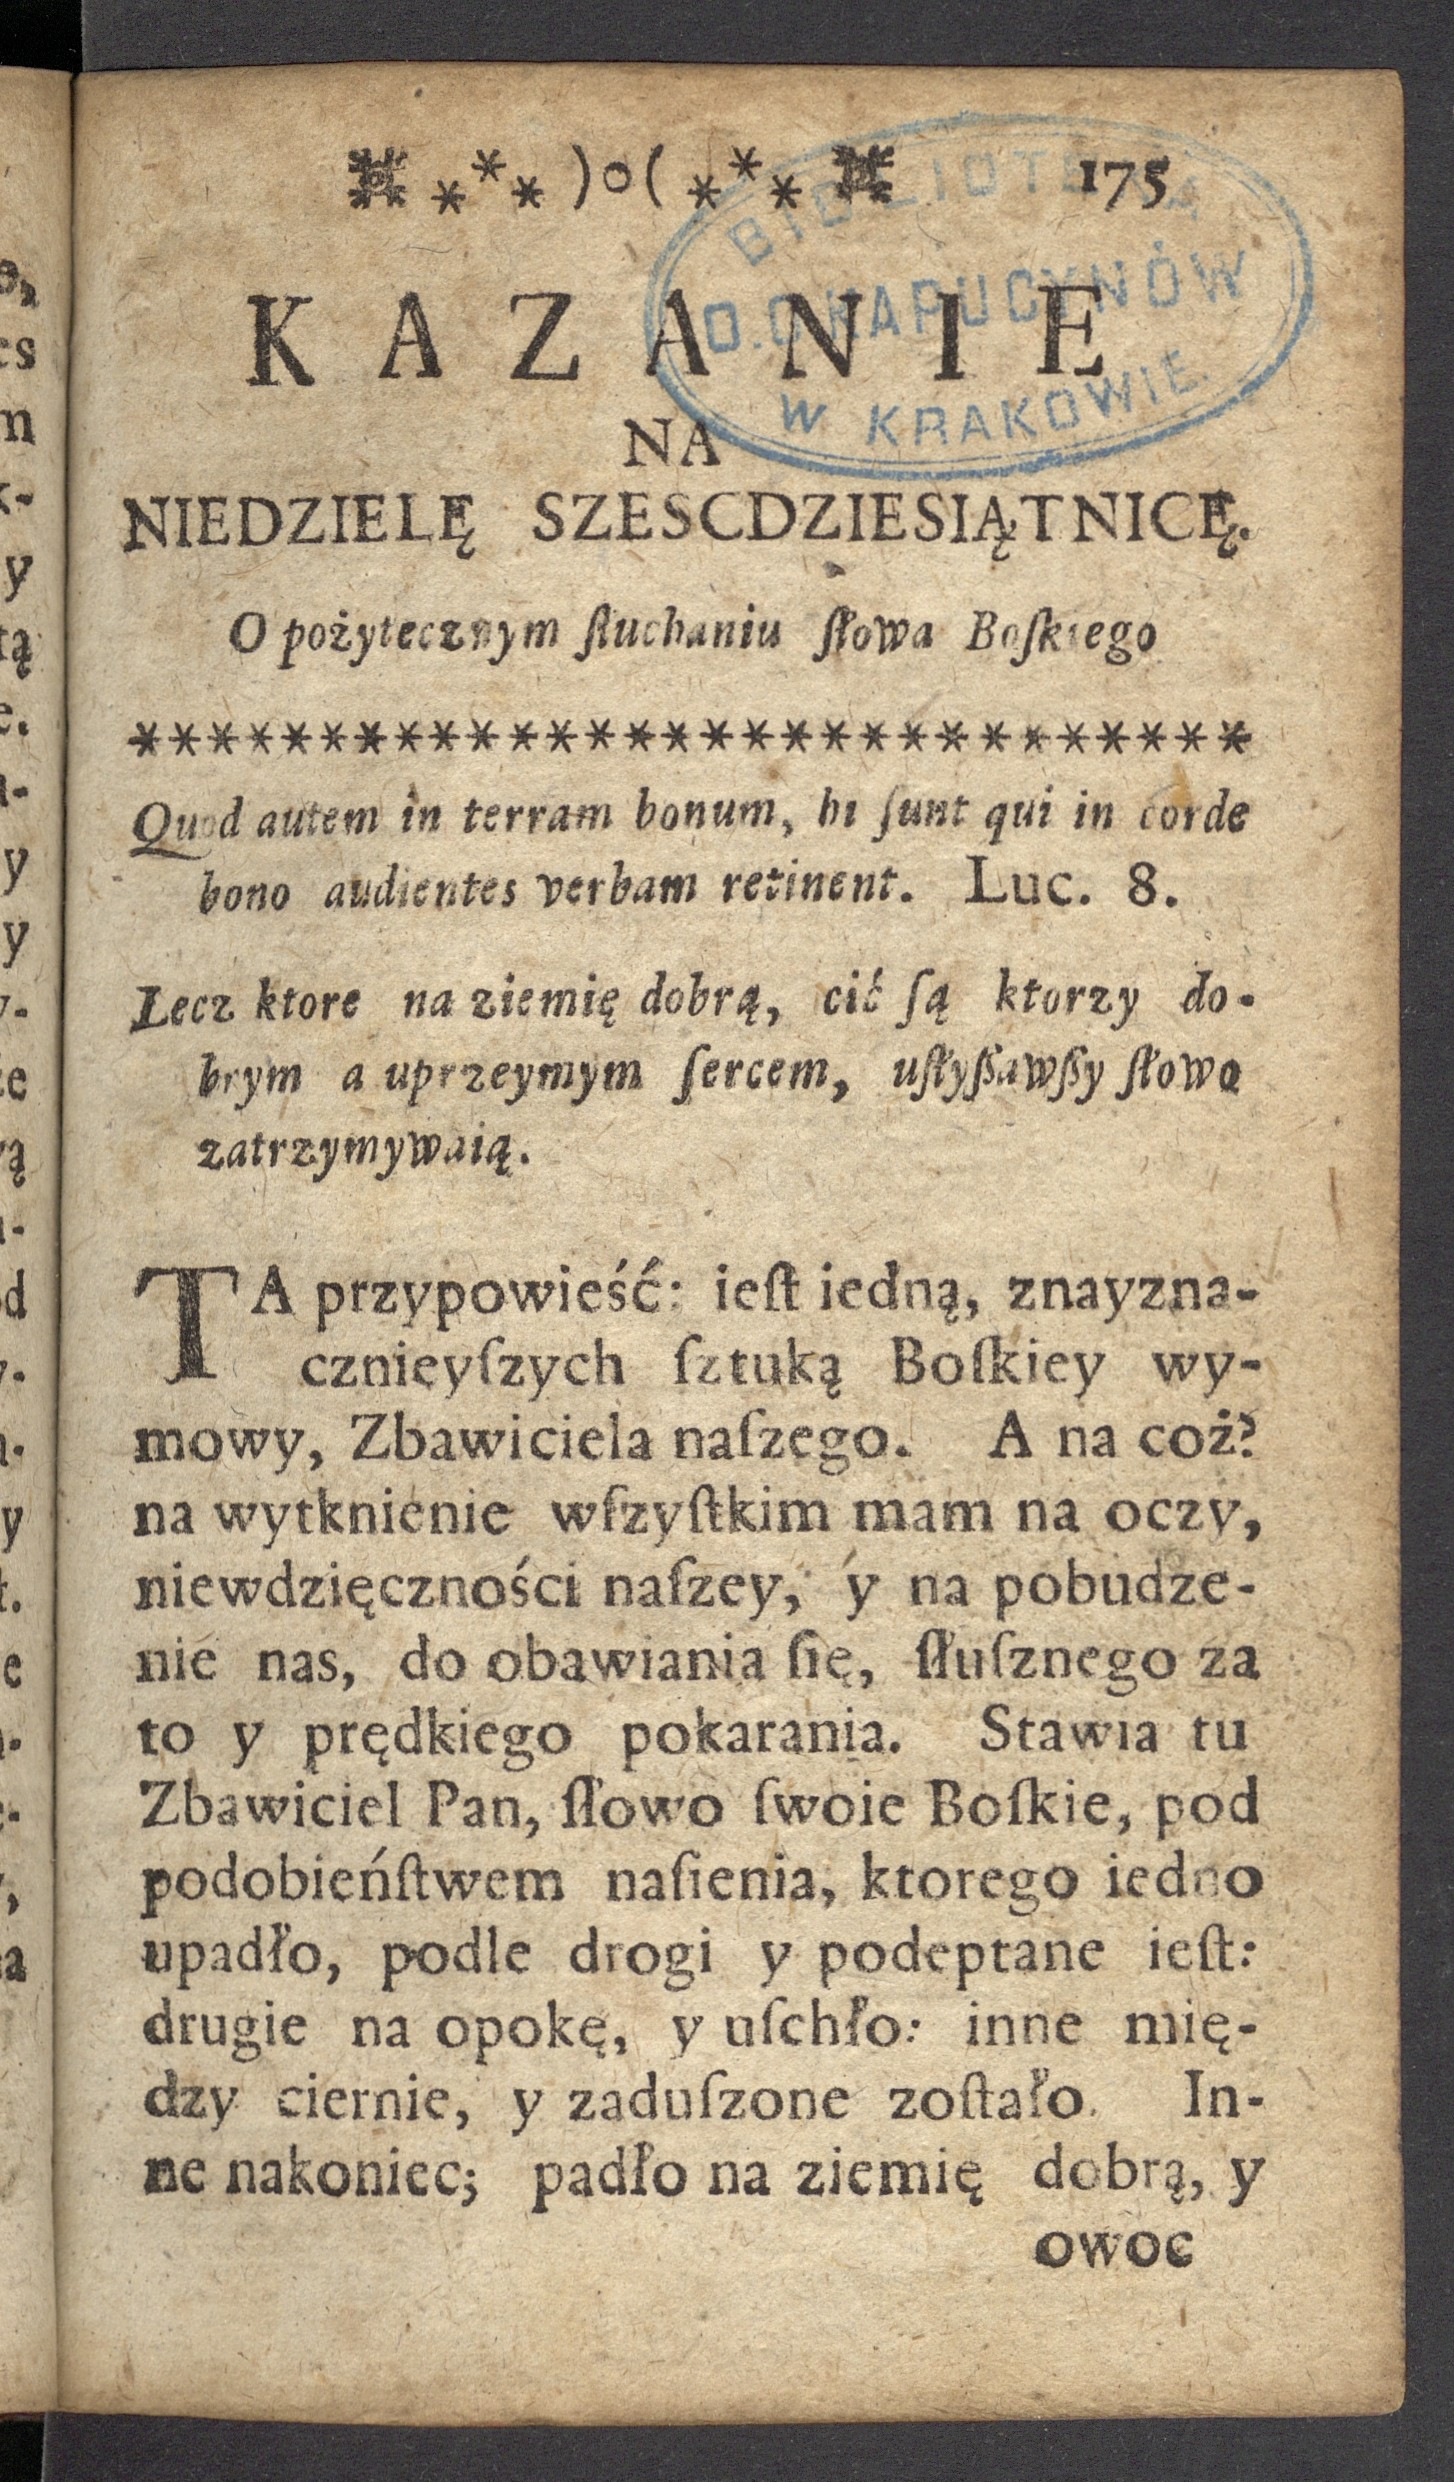 175
KAZANIE
NA
NIEDZIELĘ SZESCDZIESIĄTNICĘ.
O pożytecznym ſłuchaniu ſłowa Boſkiego
*****************************
Quod autem in terram bonum, hi ſunt qui in corde
bono audientes verbam retinent. Luc. 8.
Lecz ktore na ziemię dobrą, cić ſą ktorzy do-
brym a uprzeymym ſercem, uſłyßawßy ſłowo
zatrzymywaią.
TA przypowieść: ieſt iedną, znayzna-
cznieyſzych ſztuką Boſkiey wy-
mowy, Zbawiciela naſzego. A na coż?
na wytknienie wſzyſtkim mam na oczy,
niewdzięczności naſzey, ý na pobudze-
nie nas, do obawiania ſię, ſłuſznego za
to y prędkiego pokarania. Stawia tu
Zbawiciel Pan, ſłowo ſwoie Boſkie, pod
podobieńſtwem naſienia, ktorego iedno
upadło, podle drogi y podeptane ieſt:
drugie na opokę, y uſchło: inne mię-
dzy ciernie, y zaduſzone zoſtało. In-
ne nakoniec; padło na ziemię dobrą, y
owoc
BIBLIOTEKA
O.O. KAPUCYNÓW
W KRAKOWIE.